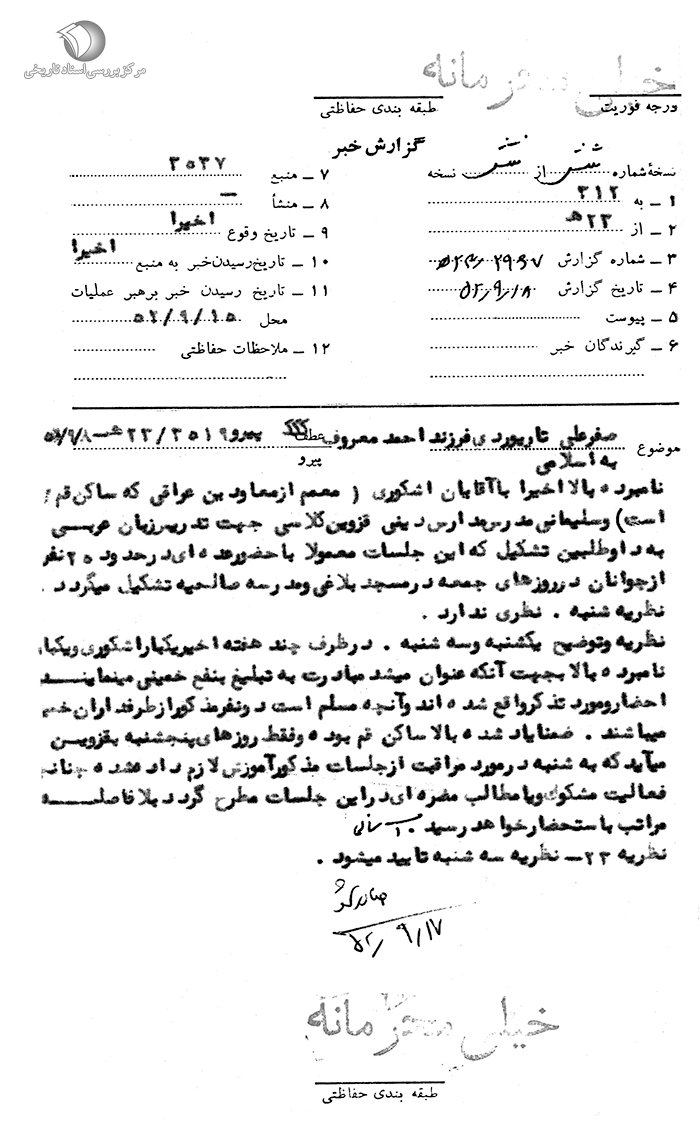 مرکز بررسی اسناد تاریخی
خیلی محرمانه
درجه فوریت
طبقه بندی حفاظتی
گزارش خبر
نسخهٔ شماره شش از شش نسخه
۱ ـ به ۳۱۲
۲ ـ از ۲۳ هـ
۳ ـ شماره گزارش
۴ ـ تاریخ گزارش ۵۲/۹/۱۸
۵ ـ پیوست
۶ ـ گیرندگان خبر
۷ ـ منبع ۳۵۳۷
۸ ـ منشأ ـ
۹ ـ تاریخ وقوع اخیرا
۱۰ ـ تاریخ رسیدن خبر به منبع اخیرا
۱۱ ـ تاریخ رسیدن خبر برهبر عملیات
محل ۵۲/۹/۱۵
۱۲ ـ ملاحظات حفاظتی
موضوع صفرعلی تاریوردی فرزند احمد معروف
به اسلامی
عطف
پیرو
پیرو ۲۳/۳۵۱۹هـ
نامبرده بالا اخیرا با آقایان اشکوری ( معمم از معاودین عراقی که ساکن قم
است) و سلیمانی مدرس مدارس دینی قزوین کلاسی جهت تدریس زبان عربی
به داوطلبین تشکیل که این جلسات معمولا با حضور عده ای در حدود ۲۵ نفر
از جوانان در روزهای جمعه در مسجد بلاغی و مدرسه صالحیه تشکیل میگردد .
نظریه شنبه . نظری ندارد .
نظریه و توضیح یکشنبه و سه شنبه . در ظرف چند هفته اخیر یکبار اشکوری و یکبار
نامبرده بالا بجهت آنکه عنوان میشد مبادرت به تبلیغ بنفع خمینی مینمایند
احضار و مورد تذکر واقع شده اند و آنچه مسلم است دو نفر مذکور از طرفداران خم
میباشند . ضمنا یاد شده بالا ساکن قم بوده و فقط روزهای پنجشنبه بقزوین
میآید که به شنبه در مورد مراقبت از جلسات مذکور آموزش لازم داده شده چنانچ
فعالیت مشکوک و یا مطالب مضره ای در این جلسات مطرح گردد بلافاصله
مراتب باستحضار خواهد رسید .
نظریه ۲۳ـ نظریه سه شنبه تایید میشود .
۵۲/۹/۱۷
خیلی محرمانه
طبقه بندی حفاظتی